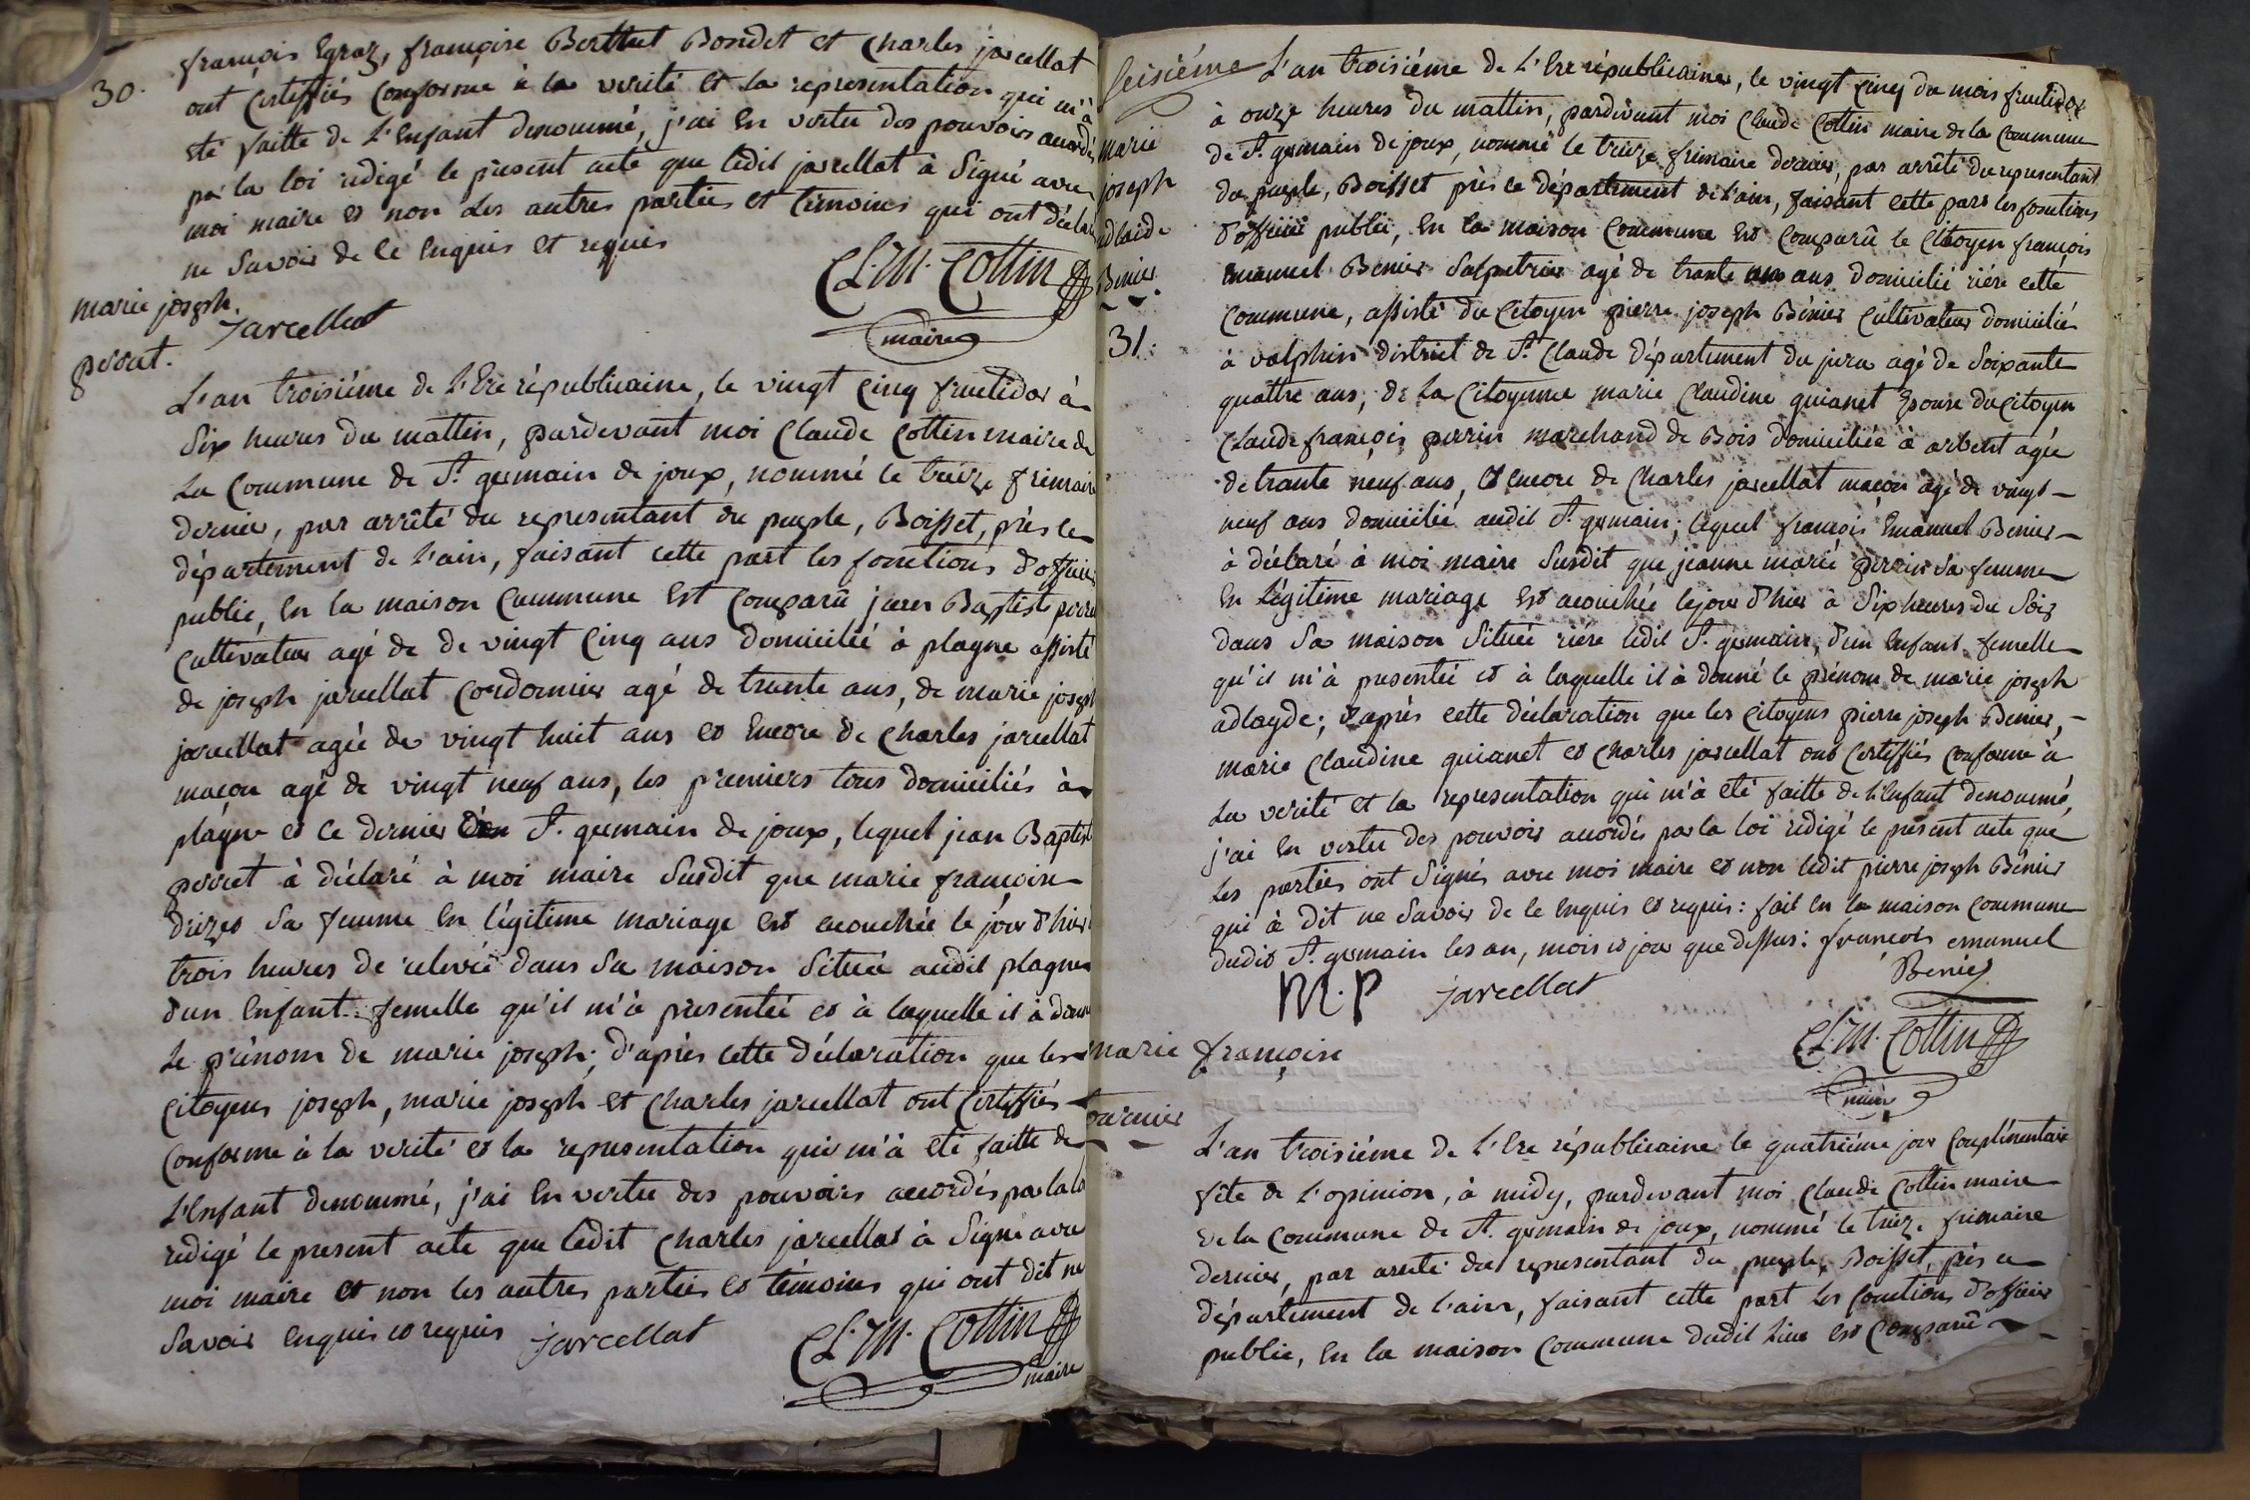 30.
françois Egraz, françoise Berthet Bondet et Charles jarcellat
ont certiffiés conforme à la verité et la representation qui m'à
eté faitte de l'enfant denommé, j'ai En vertu des pouvoirs accordés
par la loi redigé le present acte que ledit jarcellat à Signé avec
moi maire et non les autres parties et temoins qui ont déclaré
ne Savoir de ce Enquis et requis
CL. M. Cottin
maire
jarcellat
marie joseph
perret.
L'an troisiéme de L'Ere républicaine, le vingt cinq fructidor à
Six heures du mattin, pardevant moi Claude Cottin maire de
La Commune de St. germain de joux, nommé le treize frimaire
dernier, par arrêté du representant du peuple, Boisset, près le
département de L'ain, faisant cette part les fonctions d'officier
public, En la maison Commune Est Comparû jean Baptiste perret
Cultivateur agé de de vingt Cinq ans domicilié à plagne assisté
de joseph jarcellat cordonnier agé de trante ans, de marie joseph
jarcellat agée de vingt huit ans et Encore de Charles jarcellat
maçon agé de vingt neuf ans, les premiers tous domiciliés à
plagne et ce dernier St. germain de joux, lequel jean Baptiste
perret à déclaré à moi maire Susdit que marie françoise
sa femme En légitime mariage est acouchée le jour d'hier
trois heures de relevée dans Sa maison Située audit plagne
d'un Enfant femelle qu'il m'à presentée et à laquelle il à donné
Le prénom de marie joseph; d'après cette déclaration que les
Citoyens joseph, marie joseph et Charles jarcellat ont Certiffiés
Conforme à la verité et la representation qui m'à eté faitte de
L'Enfant denommé, j'ai En vertu des pouvoirs accordés par la loi
redigé le present acte que ledit Charles jarcellat à Signé avec
moi maire et non les autres parties et témoins qui ont dit ne
Savoir Enquis et requis jarcellat
CL. M. Cottin
maire
Seisiéme
L'an troisiéme de L'Ere républicaine, le vingt cinq du mois fructidor
à onze heures du mattin, pardevant moi Claude Cottin maire de la Commune
de St. germain de joux, nommé le treize frimaire dernier, par arrêté du representant
du peuple, Boisset près le département de L'ain, faisant cette part les fonctions
d'officier public, En la maison Commune est Comparû le Citoyen françois
Emanuel Benier Salpetrier agé de trante ans domicilié riére cette
Commune, assisté du Citoyen pierre joseph Bénier Cultivateur domicilié
à valphin district de St. Claude département du jura agé de Soixante
quattre ans, de La Citoyenne marie Claudine guianet Epouse du Citoyen
Claude françois perrin marchand de Bois domiciliée à arbent agée
de trante neuf ans, et Encore de Charles jarcellat maçon agé de vingt
neuf ans domicilié audit St. germain; lequel françois Emanuel Benier
à déclaré à moi maire Susdit que jeanne marie perrin Sa femme
En Légitime mariage est acouchée le jour d'hier à Six heures du Soir
dans Sa maison Située riére ledit St. germain, d'un Enfant femelle
qu'il m'à presentée et à laquelle il à donné le prénom de marie joseph
adlayde; d'après cette déclaration que les Citoyens pierre joseph Benier,
marie Claudine guianet et Charles jarcellat ont Certiffiés Conforme à
La verité et la representation qui m'à eté faitte de L'Enfant denommé,
j'ai En vertu des pouvoirs accordés par la loi redigé le present acte que
Les parties ont Signés avec moi maire et non ledit pierre joseph Bénier
qui à dit ne Savoir de ce Enquis et requis: fait En la maison Commune
dudit St. germain les an, mois et jour que dessus: françois emanuel
Benier
M. P jarcellat
CL. M. Cottin
maire
marie
joseph
adlaide
Benier.
31.
marie françoise
tournier
L'an troisiéme de L'Ere républicaine le quatriéme jour Complémentaire
fête de L'opinion, à midy, pardevant moi Claude Cottin maire
de la Commune de St. germain de joux, nommé le treize frimaire
dernier, par arreté du representant du peuple, Boisset, près ce
département de L'ain, faisant cette part les fonctions d'officier
public, En la maison Commune dudit Lieu est Comparû